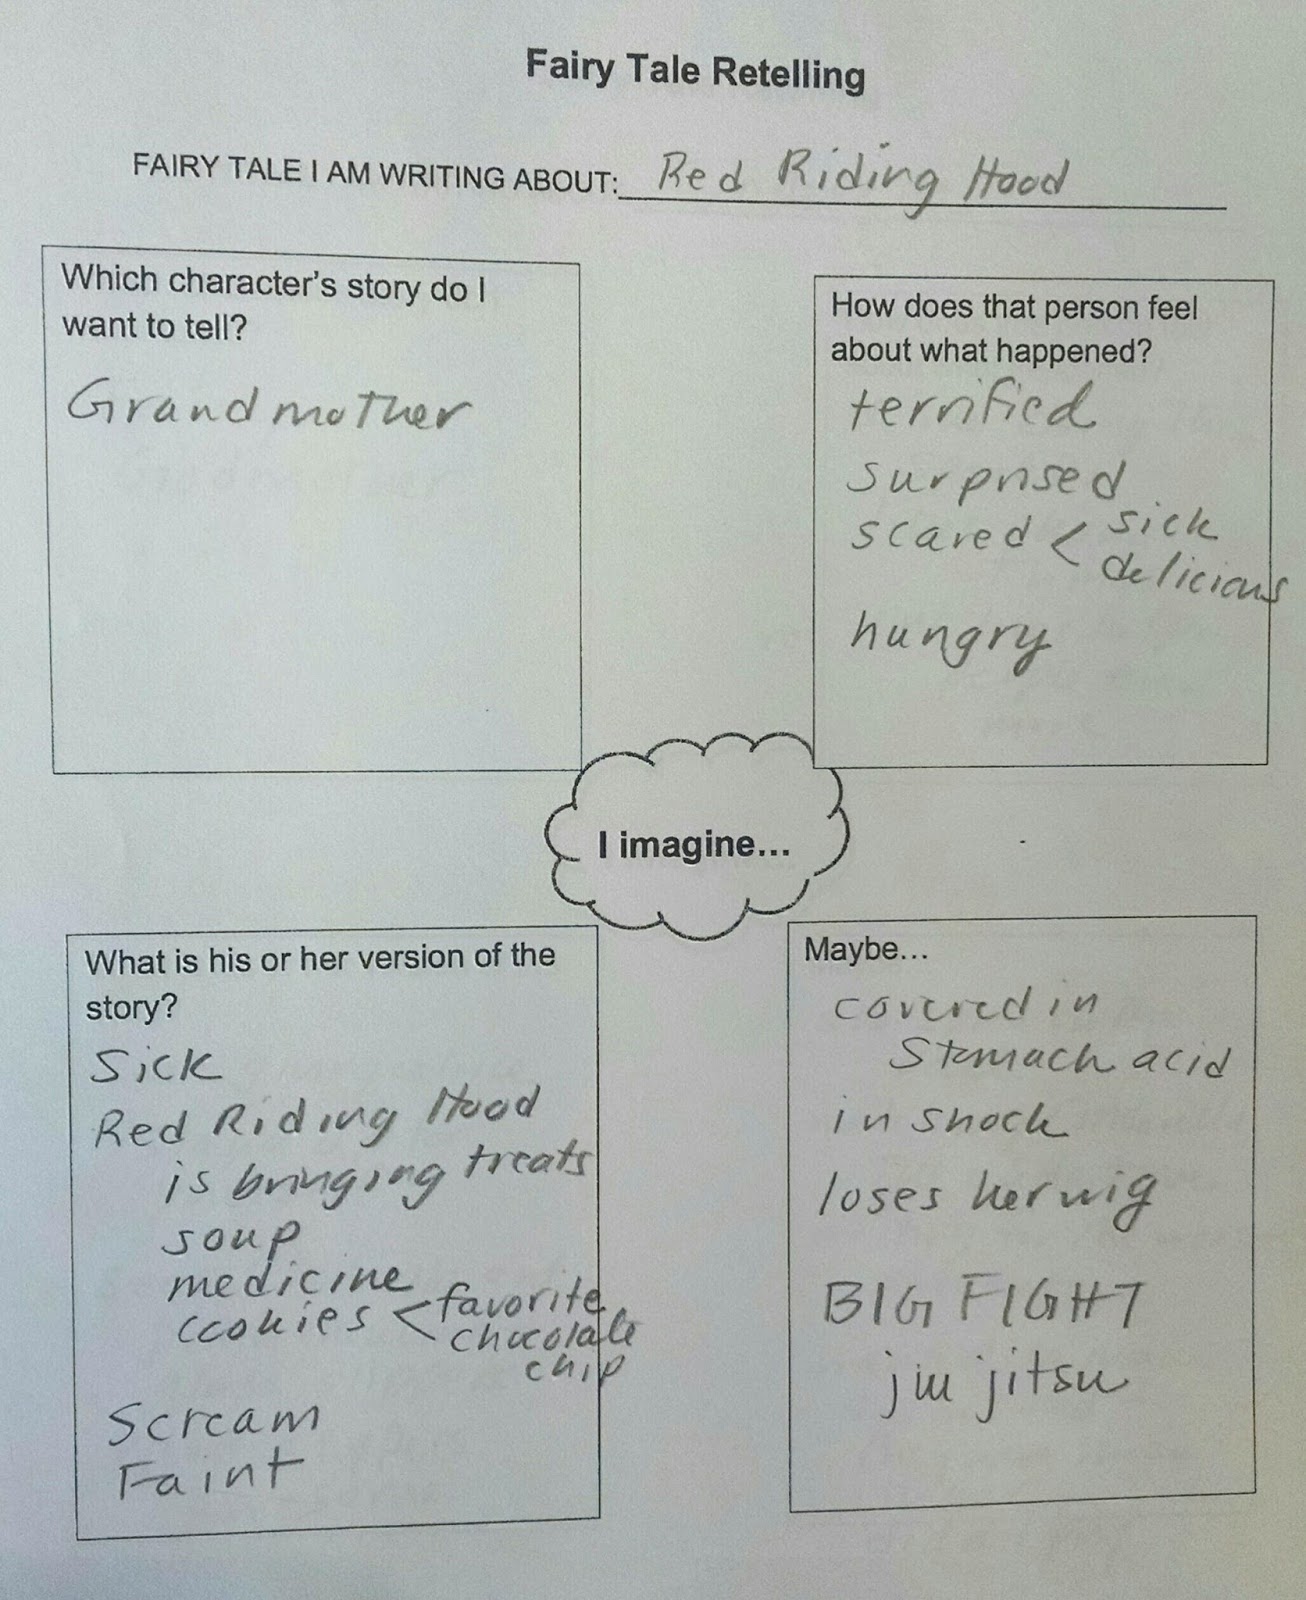 Fairy Tale Retelling
FAIRY TALE I AM WRITING ABOUT: Red Riding Hood
Which character's story do I
want to tell?
Grandmother
How does that person feel
about what happened?
terrified
surprised
scared < sick
delicious
hungry
I imagine...
What is his or her version of the
story?
Sick
Red Riding Hood
is bringing treats
soup
medicine
cookies < favorite
chocolate
chip
Scream
Faint
Maybe...
covered in
stomach acid
in shock
loses her wig
BIG FIGHT
jiu jitsu